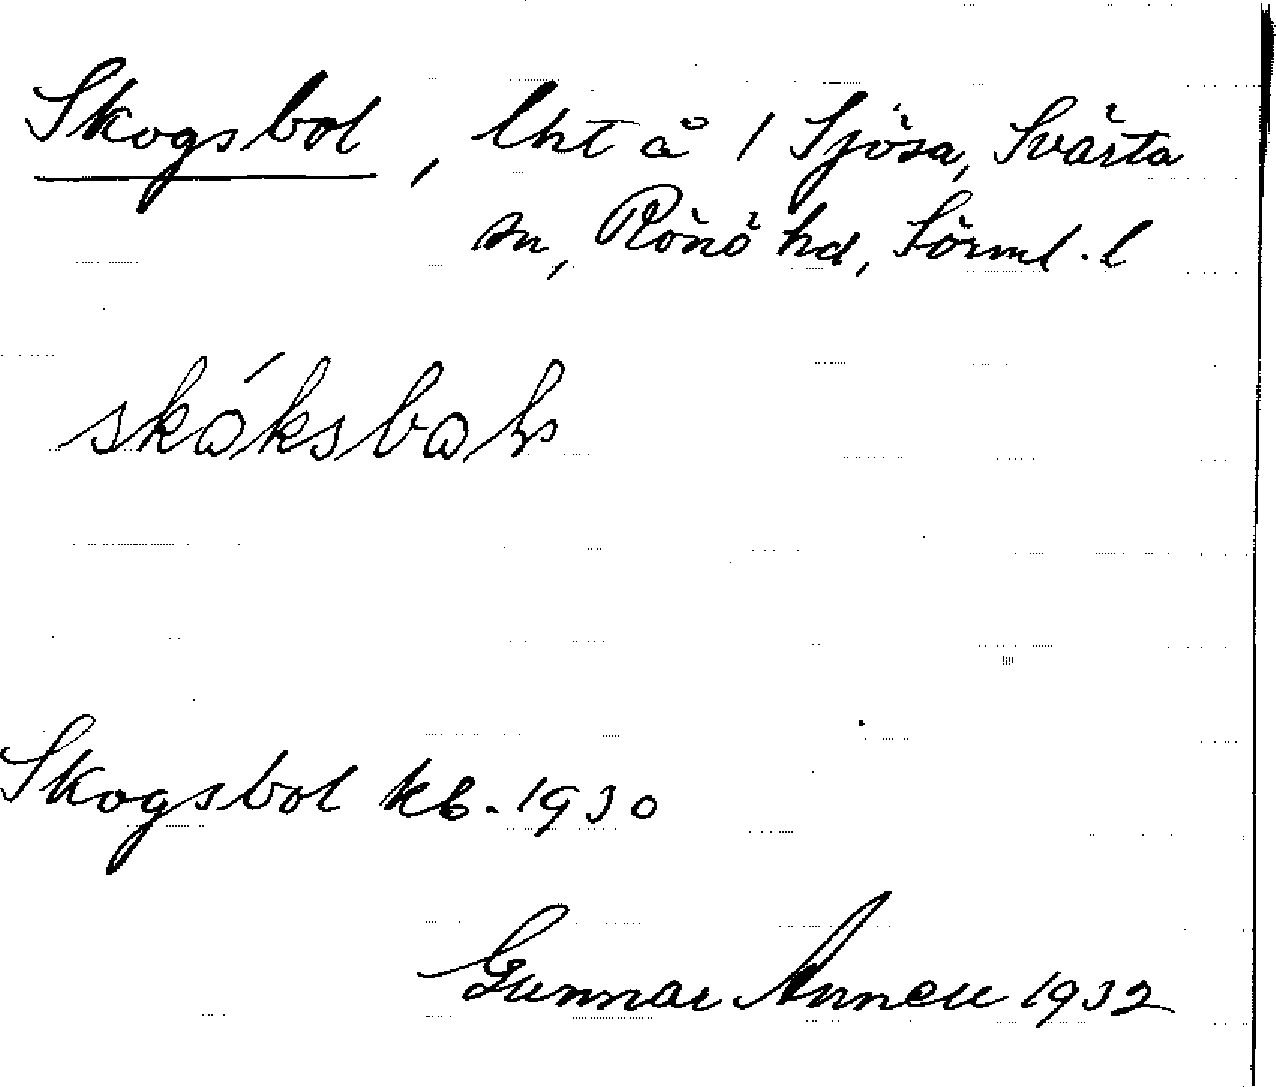 Skogsbol, lht å 1 Sjösa, Svärta
sn, Rönö hd, Sörml. l
skáksbals
Skogsbol kb. 1930
Gunnar Annell 1932